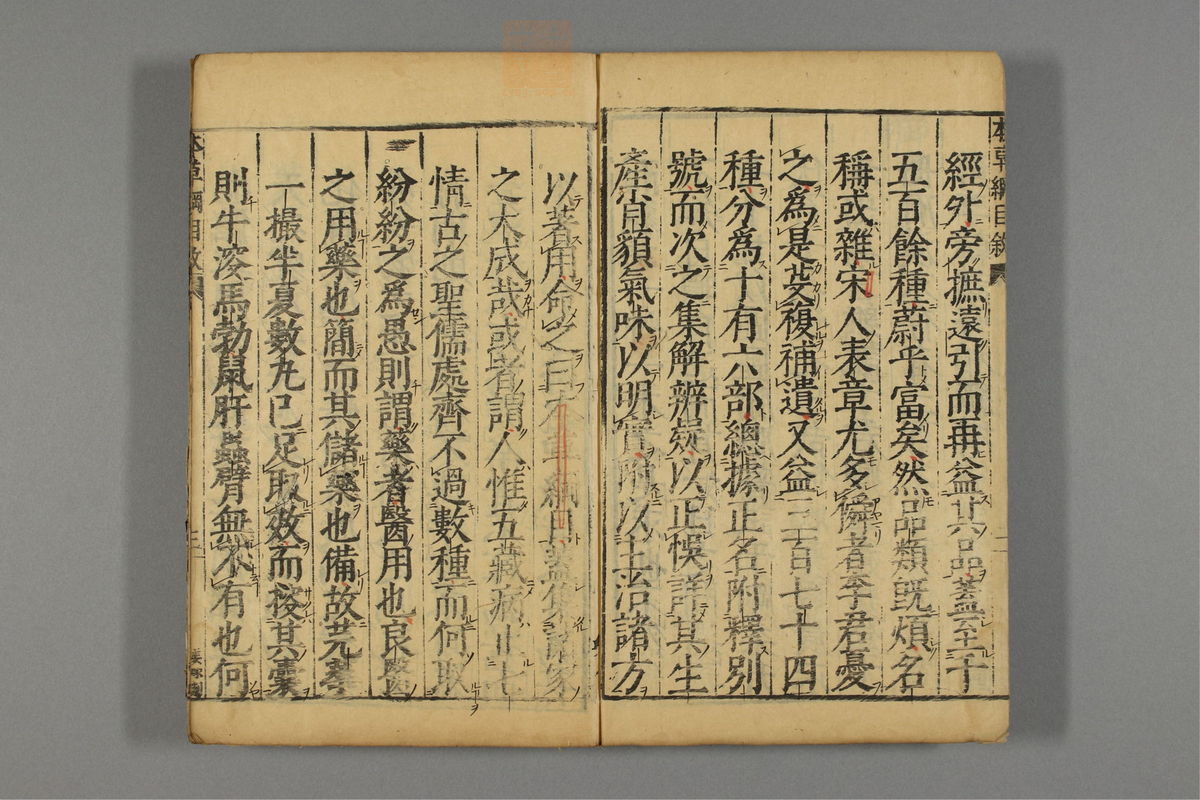 本草綱目敘
經外旁摭遠引而再益廿六品蓋至千
五百餘種蔚乎富矣然品類既煩名
稱或雜宋人表章尤多舛者李君憂
之爲是芟複補遺又益三百七十四
種分爲十有六部總據正名附釋別
號而次之集解辨疑以正悞詳其生
產肖貌氣味以明實附以主治諸方
以著用命之曰本草綱目蓋集諸家
之大成哉或者謂人惟五藏病止七
情古之聖儒處齊不過數種而何取
紛紛之爲愚則謂藥者醫用也良醫
之用藥也簡而其儲藥也備故芫華
一撮半夏數丸已足取效而探其囊
則牛溲馬勃鼠肝蟲臂無不有也何
本草綱目敘